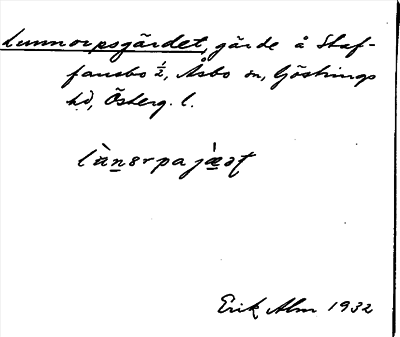 Lunnorpsgärdet, gärde å Staf-
fansbo ½, Åsbo sn, Göstrings
hd, Österg. l.
Erik Alm 1932